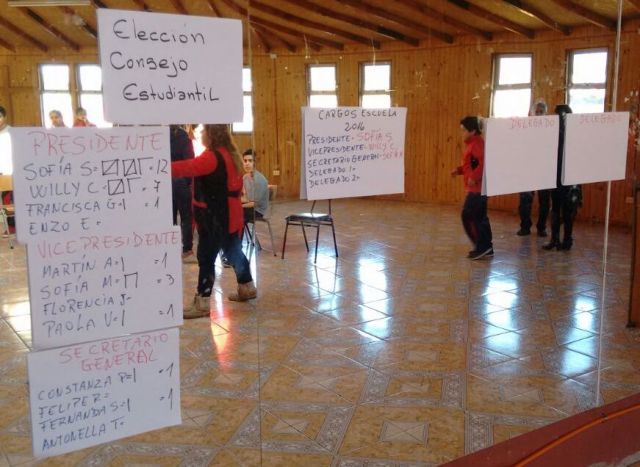 Elección
Consejo
Estudiantil
PRESIDENTE
SOFÍA S= =12
WILLY C= =7
FRANCISCA G=I =1
ENZO E=
VICEPRESIDENTE
MARTÍN A=I =1
SOFÍA M= =3
FLORENCIA J=
PAOLA V=I =1
SECRETARIO
GENERAL
CONSTANZA P=I =1
FELIPE R=
FERNANDA S=I =1
ANTONELLA T=
CARGOS ESCUELA
2016
PRESIDENTE= SOFÍA S
VICEPRESIDENTE= WILLY C.
SECRETARIO GENERAL= SOFÍA
DELEGADO 1=
DELEGADO 2=
DELEGADO
DELEGADO